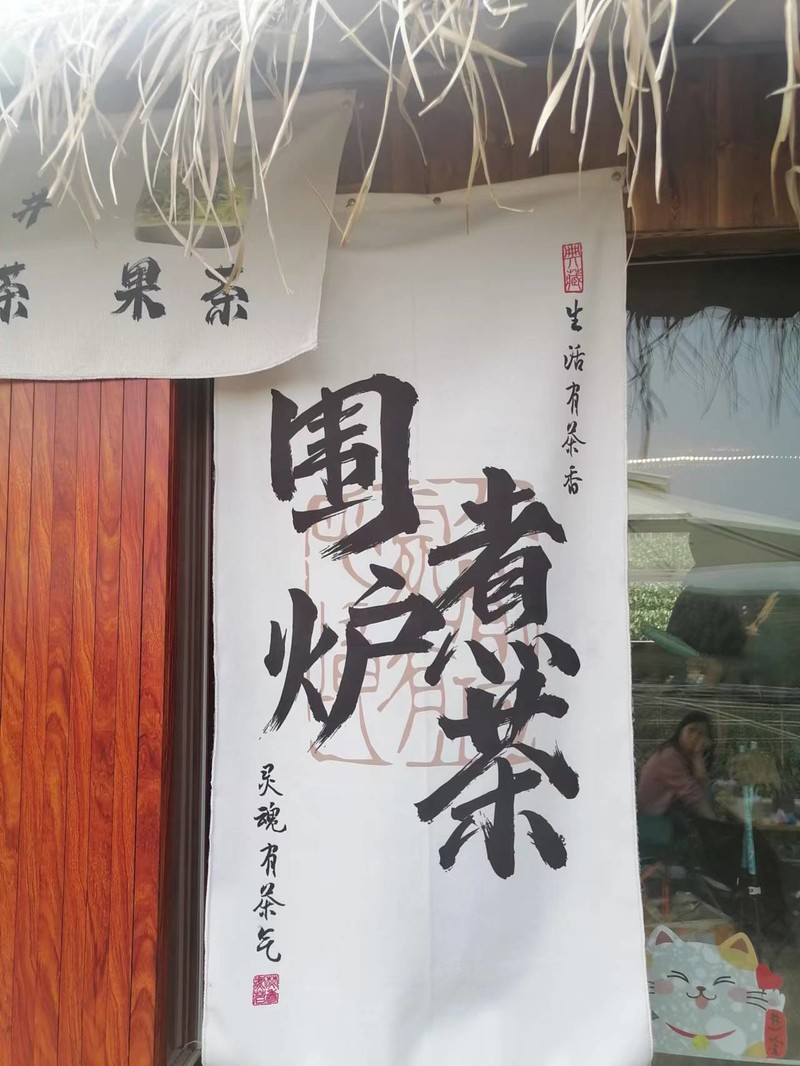 井
茶 果茶
典藏
生活有茶香
围炉
煮茶
灵魂有茶气